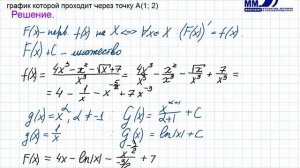 график которой проходит через точку A(1; 2)
Решение.
F(x) - перв. f(x) на X ⟺ ∀x∈X (F(x))' = f(x)
F(x) + C - множество
f(x) = (4x³ - x² - √x + 7)/x³ = 4x³/x³ - x²/x³ - √x/x³ + 7/x³ =
= 4 - 1/x - x^(-5/2) + 7x^(-3)
g(x) = x^α, α ≠ -1 : G(x) = x^(α+1)/(α+1) + C
g(x) = 1/x : G(x) = ln|x| + C
F(x) = 4x - ln|x| - + 7